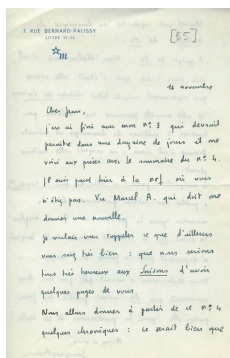 7, RUE BERNARD-PALISSY
LITTRÉ
[55]
m
16 novembre
Cher Jean,
j'en ai fini avec mon n° 3 qui devrait
paraître dans une dizaine de jours et me
voici aux prises avec le sommaire du n° 4.
Je suis passé hier à la nrf où vous
n'étiez pas. Vu Marcel A. qui doit me
donner une nouvelle.
Je voulais vous rappeler ce que d'ailleurs
vous savez très bien : que nous serions
tous très heureux aux Saisons d'avoir
quelques pages de vous.
Nous allons donner à partir de ce n° 4
quelques chroniques : ce serait bien que